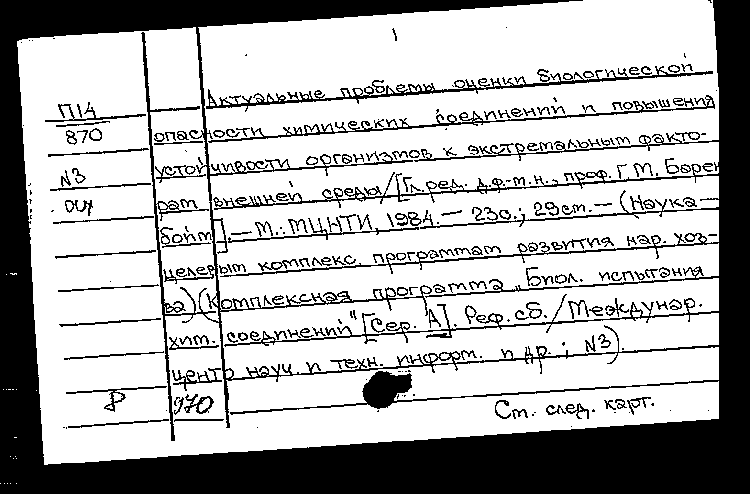 1
Актуальные проблемы оценки биологической
П14
870 опасности химических соединений и повышения
N3 устойчивости организмов к экстремальным факто-
рам внешней среды/[Гл.ред.: д.ф-м.н., проф. Г.М. Барен
бойм]. — М.: МЦНТИ, 1984. — 23с.; 29см. — (Наука —
целевым комплекс. программам развития нар. хоз-
ва) (Комплексная программа „Биол. испытания
хим. соединений" [Сер. А]. Реф. сб. / Междунар.
центр науч. и техн. информ. и др.; N3)
Р 970
См. след. карт.